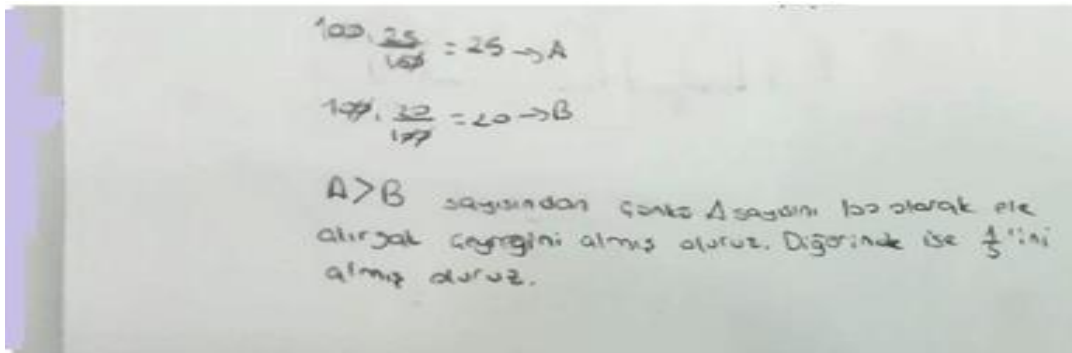 100. 25/100 = 25 → A
100. 20/100 = 20 → B
A>B sayısından çünkü A sayısını 100 olarak ele
alırsak çeyreğini almış oluruz. Diğerinde ise 1/5'ini
almış oluruz.